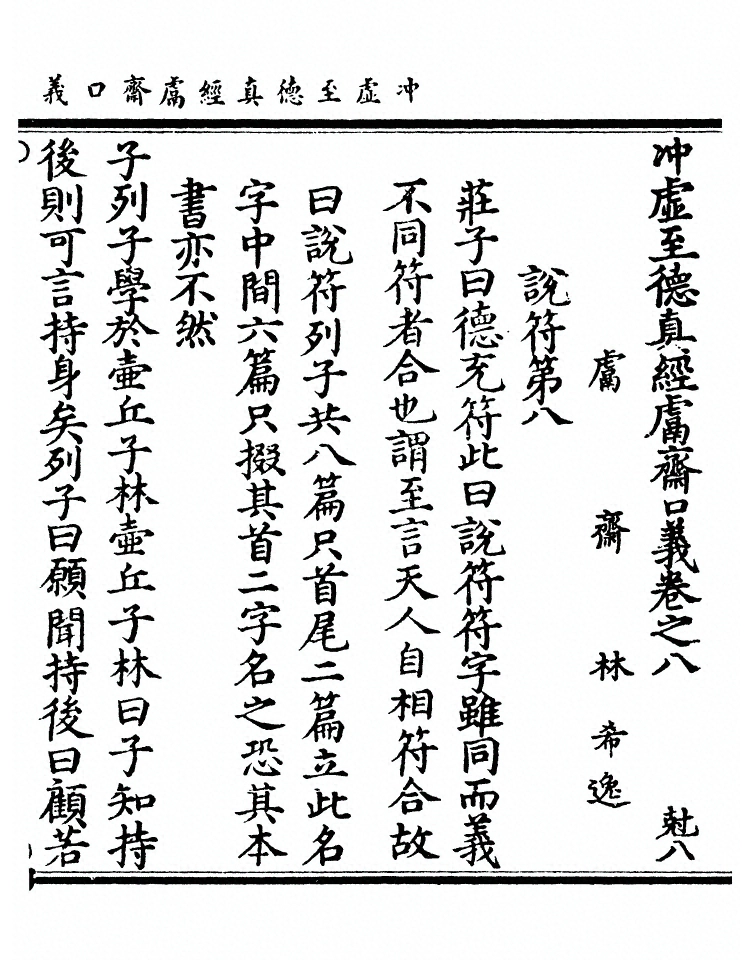 冲虛至德真經鬳齋口義
冲虛至德真經鬳齋口義卷之八
尅八
鬳齋林希逸
說符第八
莊子曰德充符此曰說符符字雖同而義
不同符者合也謂至言天人自相符合故
曰說符列子共八篇只首尾二篇立此名
字中間六篇只掇其首二字名之恐其本
書亦不然
子列子學於壷丘子林壷丘子林曰子知持
後則可言持身矣列子曰願聞持後曰顧若